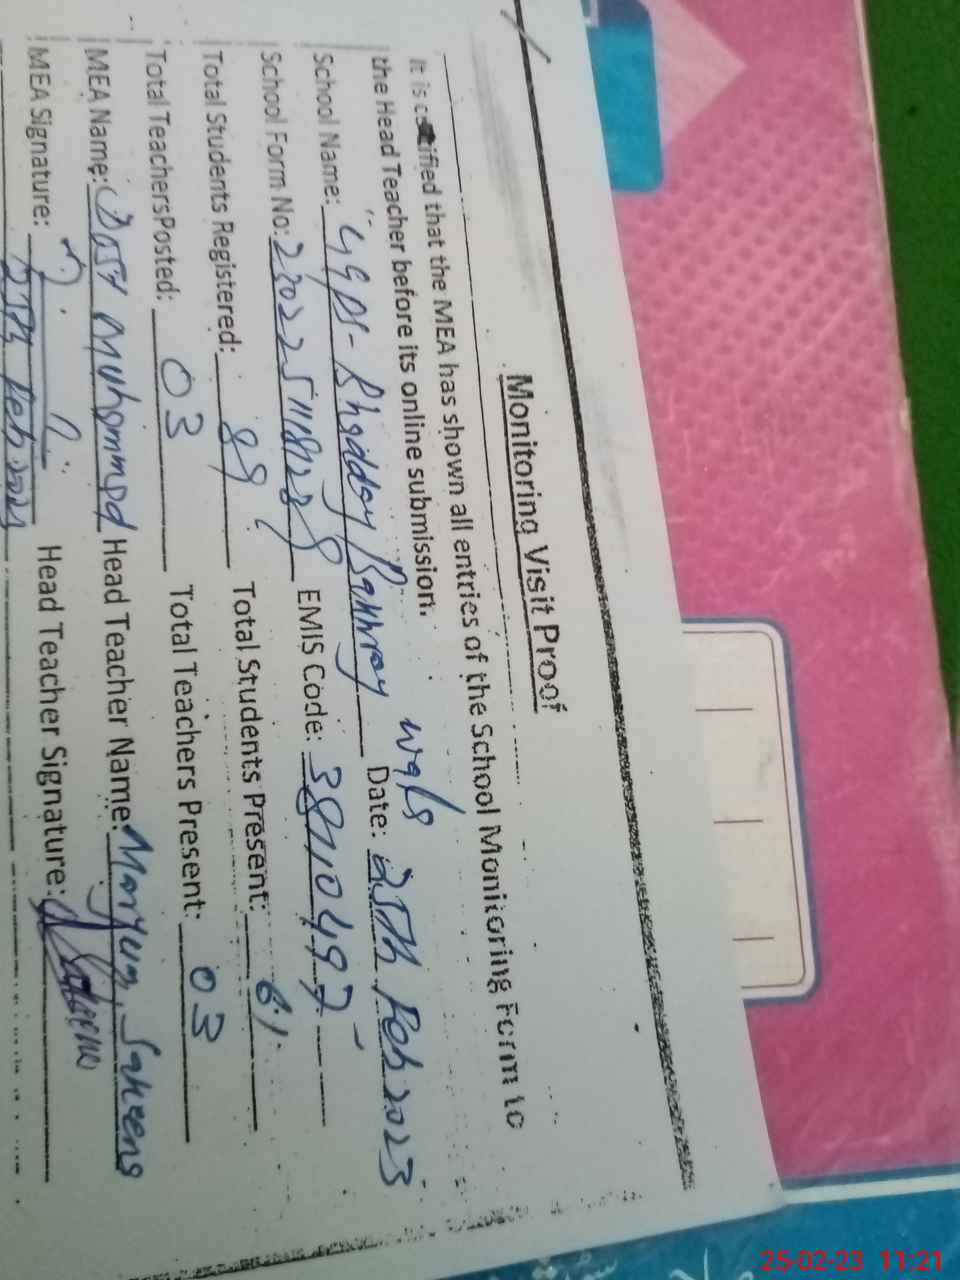 Monitoring Visit Proof
It is certified that the MEA has shown all entries of the School Monitoring Form to
the Head Teacher before its online submission.
School Name: Date: 25th Feb 2023
School Form No: EMIS Code: 38110497
Total Students Registered: 89 Total Students Present: 61
Total TeachersPosted: 03 Total Teachers Present: 03
MEA Name: Dost Muhammad Head Teacher Name: Maryum
MEA Signature: Head Teacher Signature:
25-02-23 11:21